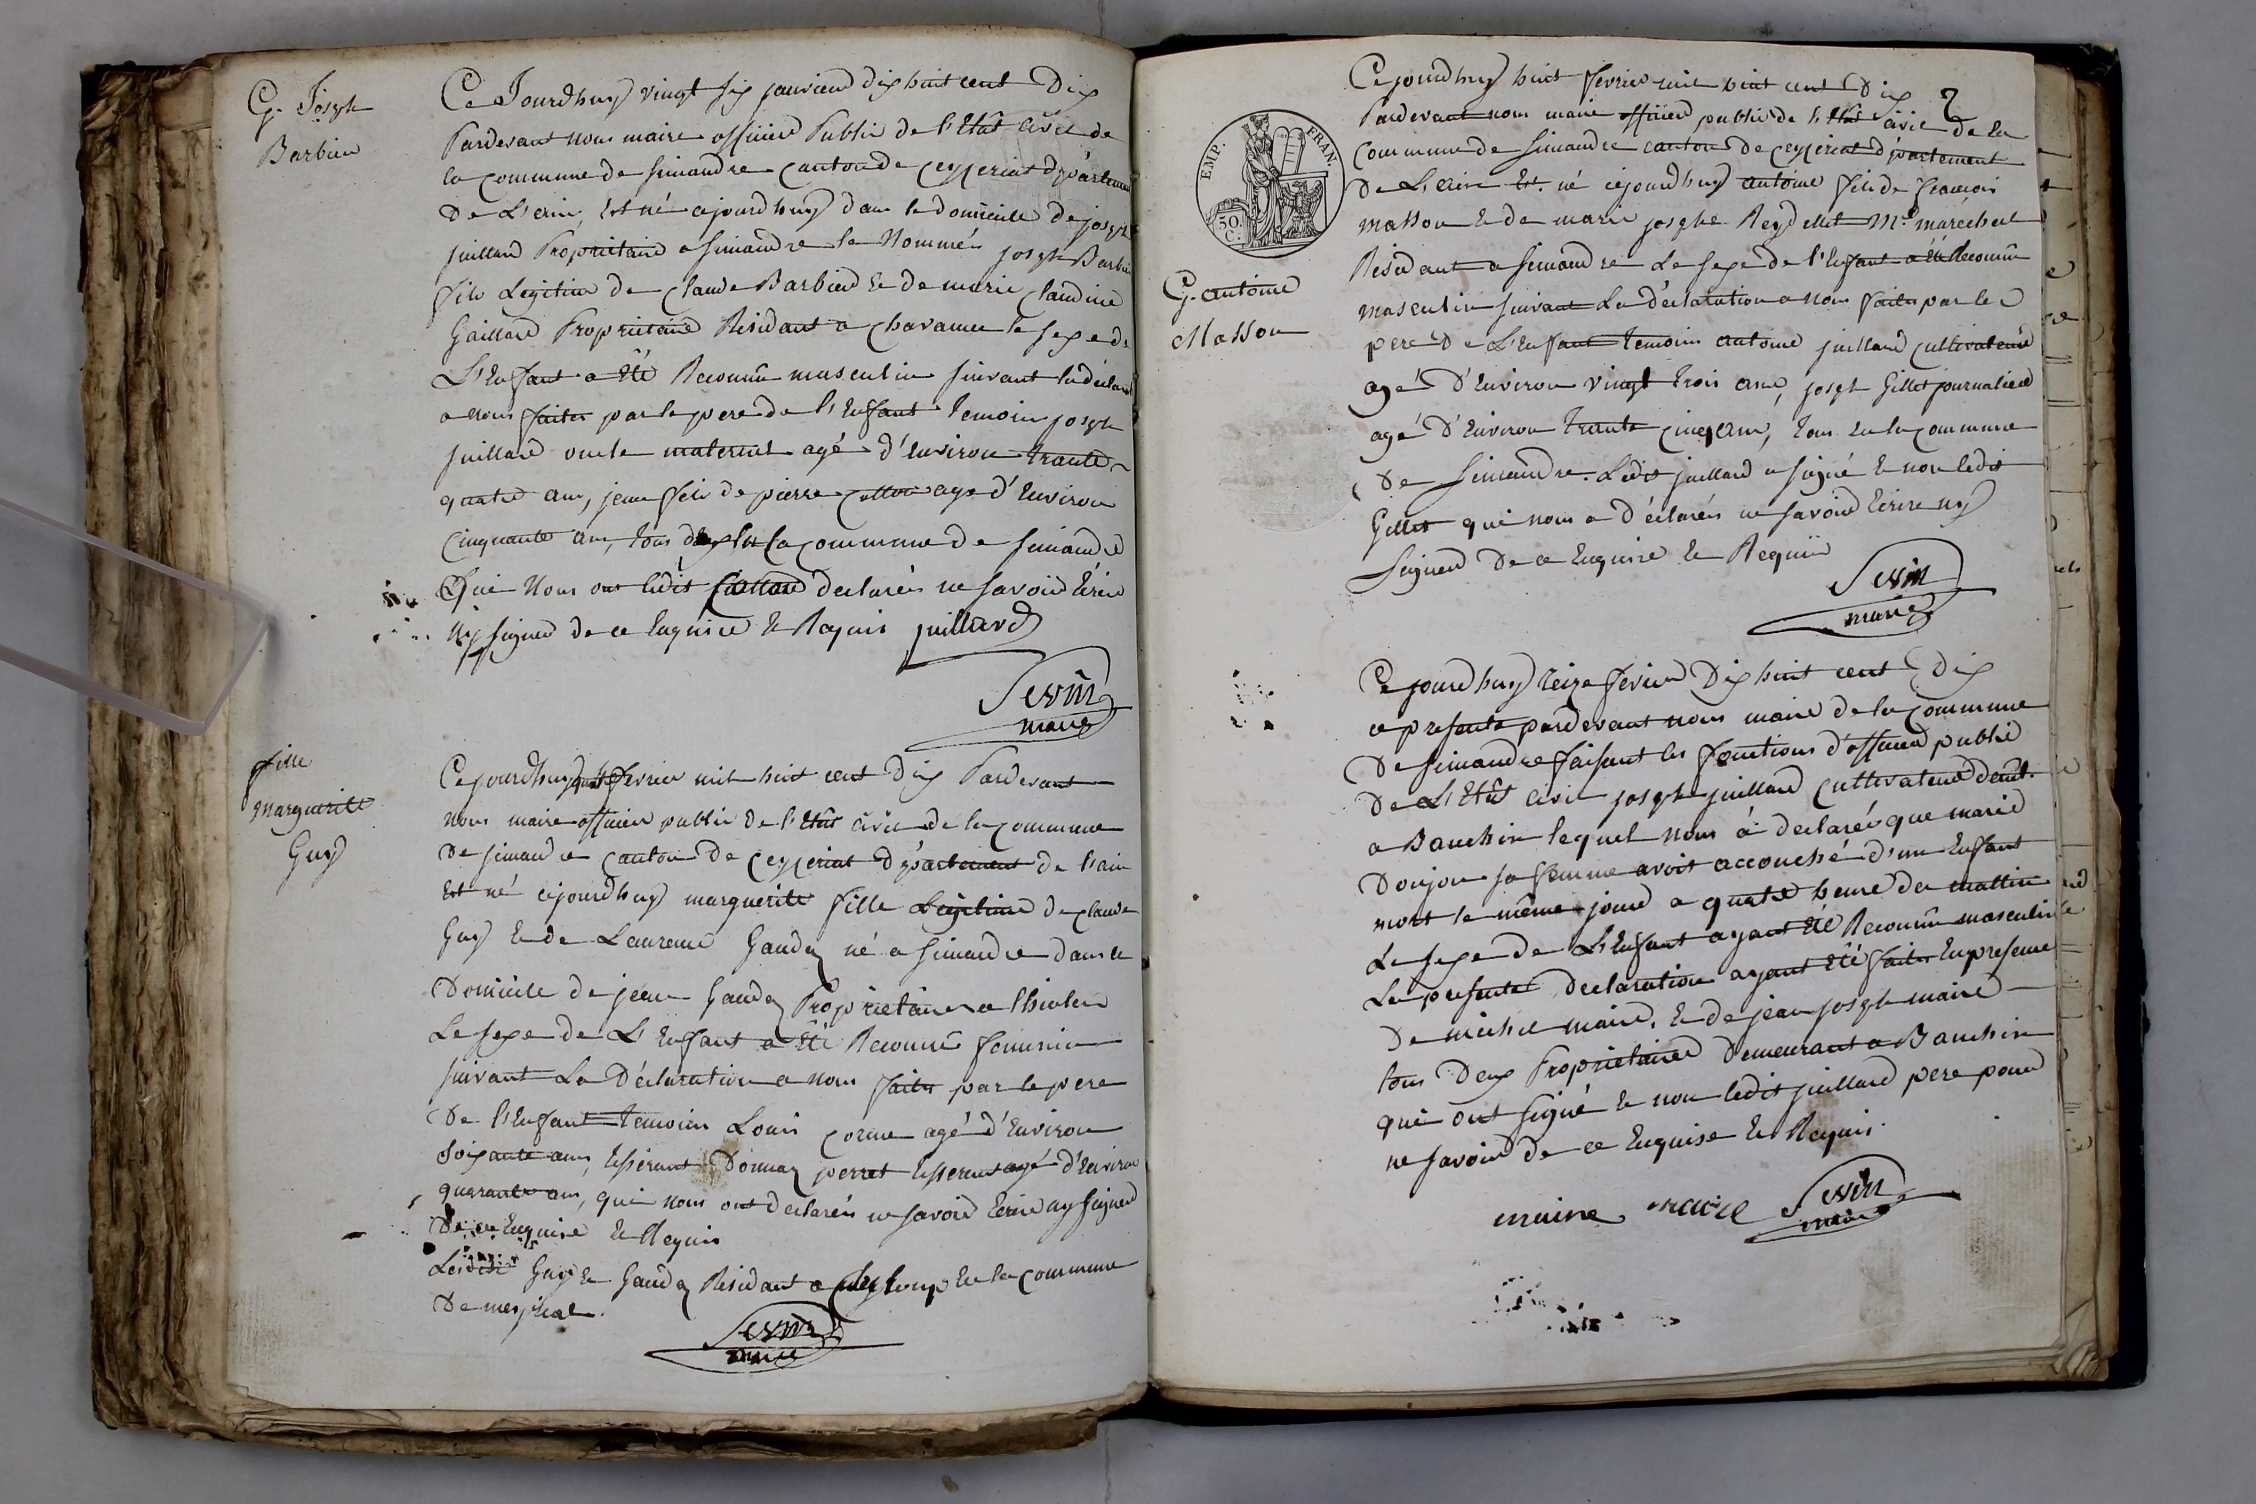 G. Joseph
Barbier
Ce Jourdhuy vingt six janvier dix huit cent Dix
Pardevant nous maire officier Public de l'Etât civil de
la commune de simandre canton de ceyzeriat départeme
De L'ain, Est né cejourdhuy dans le domicile de joseph
juillard Propriétaire a simandre le Nommé joseph Barbier
fils Légitime de Claude Barbier Et de marie claudine
Gaillard Propriétaire Résidant a Chavannes le sexe de
L'Enfant a Eté Reconnû masculin suivant la déclara
a nous faites par le pere de l'Enfant Temoins joseph
juillard oncle maternel agé d'Environ trante
quatre ans, jean fils de pierre agé d'Environ
Cinquante ans, tous deux la commune de simandre
Qui Nous ont ledit déclarés ne savoir Ecrire
Ny signer de ce Enquis Et Requis juillard
Sevin
maire
fille
marguerite
Guy
Cejourdhuy fevrier mil huit cent Dix Pardevant
nous maire officier public de l'Etât civil de la commune
de simandre canton De ceyzeriat département de l'ain
Est né cejourdhuy marguerite fille Légitime de claude
Guy Et de Laurence Gauda né a simandre dans le
Domicile de jean Gauda Propriétaire a
Le sexe de L'Enfant a Eté Reconnû feminin
suivant La Déclaration a nous faites par le pere
De l'Enfant Temoins Louis agé d'Environ
soixante ans, perret agé d'Environ
quarante ans, qui nous ont déclarés ne savoir Ecrire ny signer
De ce Enquise Et Requis
Guy Et Gauda Résidant a En la commune
De
Sevin
maire
2
EMP. FRAN.
50. C.
G. antoine
Masson
Cejourdhuy huit fevrier mil huit cent Dix
Pardevant nous maire officier public de l'Etât civil de la
Commune de simandre canton de ceyzeriat département
De L'ain Est né cejourdhuy antoine fils de francois
masson Et de marie josephe Reydellet Md maréchal
Résidant a simandre Le sexe de l'Enfant a été Reconnû
masculin suivant La déclaration a nous faites par le
pere De L'Enfant Temoins antoine juillard cultivateur
agé D'Environ vingt trois ans, joseph Gillet journalier
agé D'Environ trante cinq ans, tous En la commune
De simandre. Ledit juillard a signé Et non ledit
Gillet qui nous a Déclarés ne savoir Ecrire ny
Signer De ce Enquise Et Requis
Sevin
maire
Ce jourdhuy treize fevrier Dix huit cent Dix
ce presente pardevant nous maire de la commune
De simandre faisant les fonctions d'officier public
De L'Etât civil joseph juillard Cultivateur demt.
a Banchin lequel nous à déclarés que marie
Donjon sa femme avoit accouché d'un Enfant
mort le même jour a quatre heure du mattin
Le sexe de L'Enfant ayant Eté Reconnû masculin
La presente Declaration ayant Eté faites En presence
De michel maire, Et de jean joseph maire
tous Deux Propriétaires Demeurant a Banchin
qui ont signé Et non ledit juillard pere pour
ne savoir De ce Enquise Et Requis.
maire maire Sevin
maire